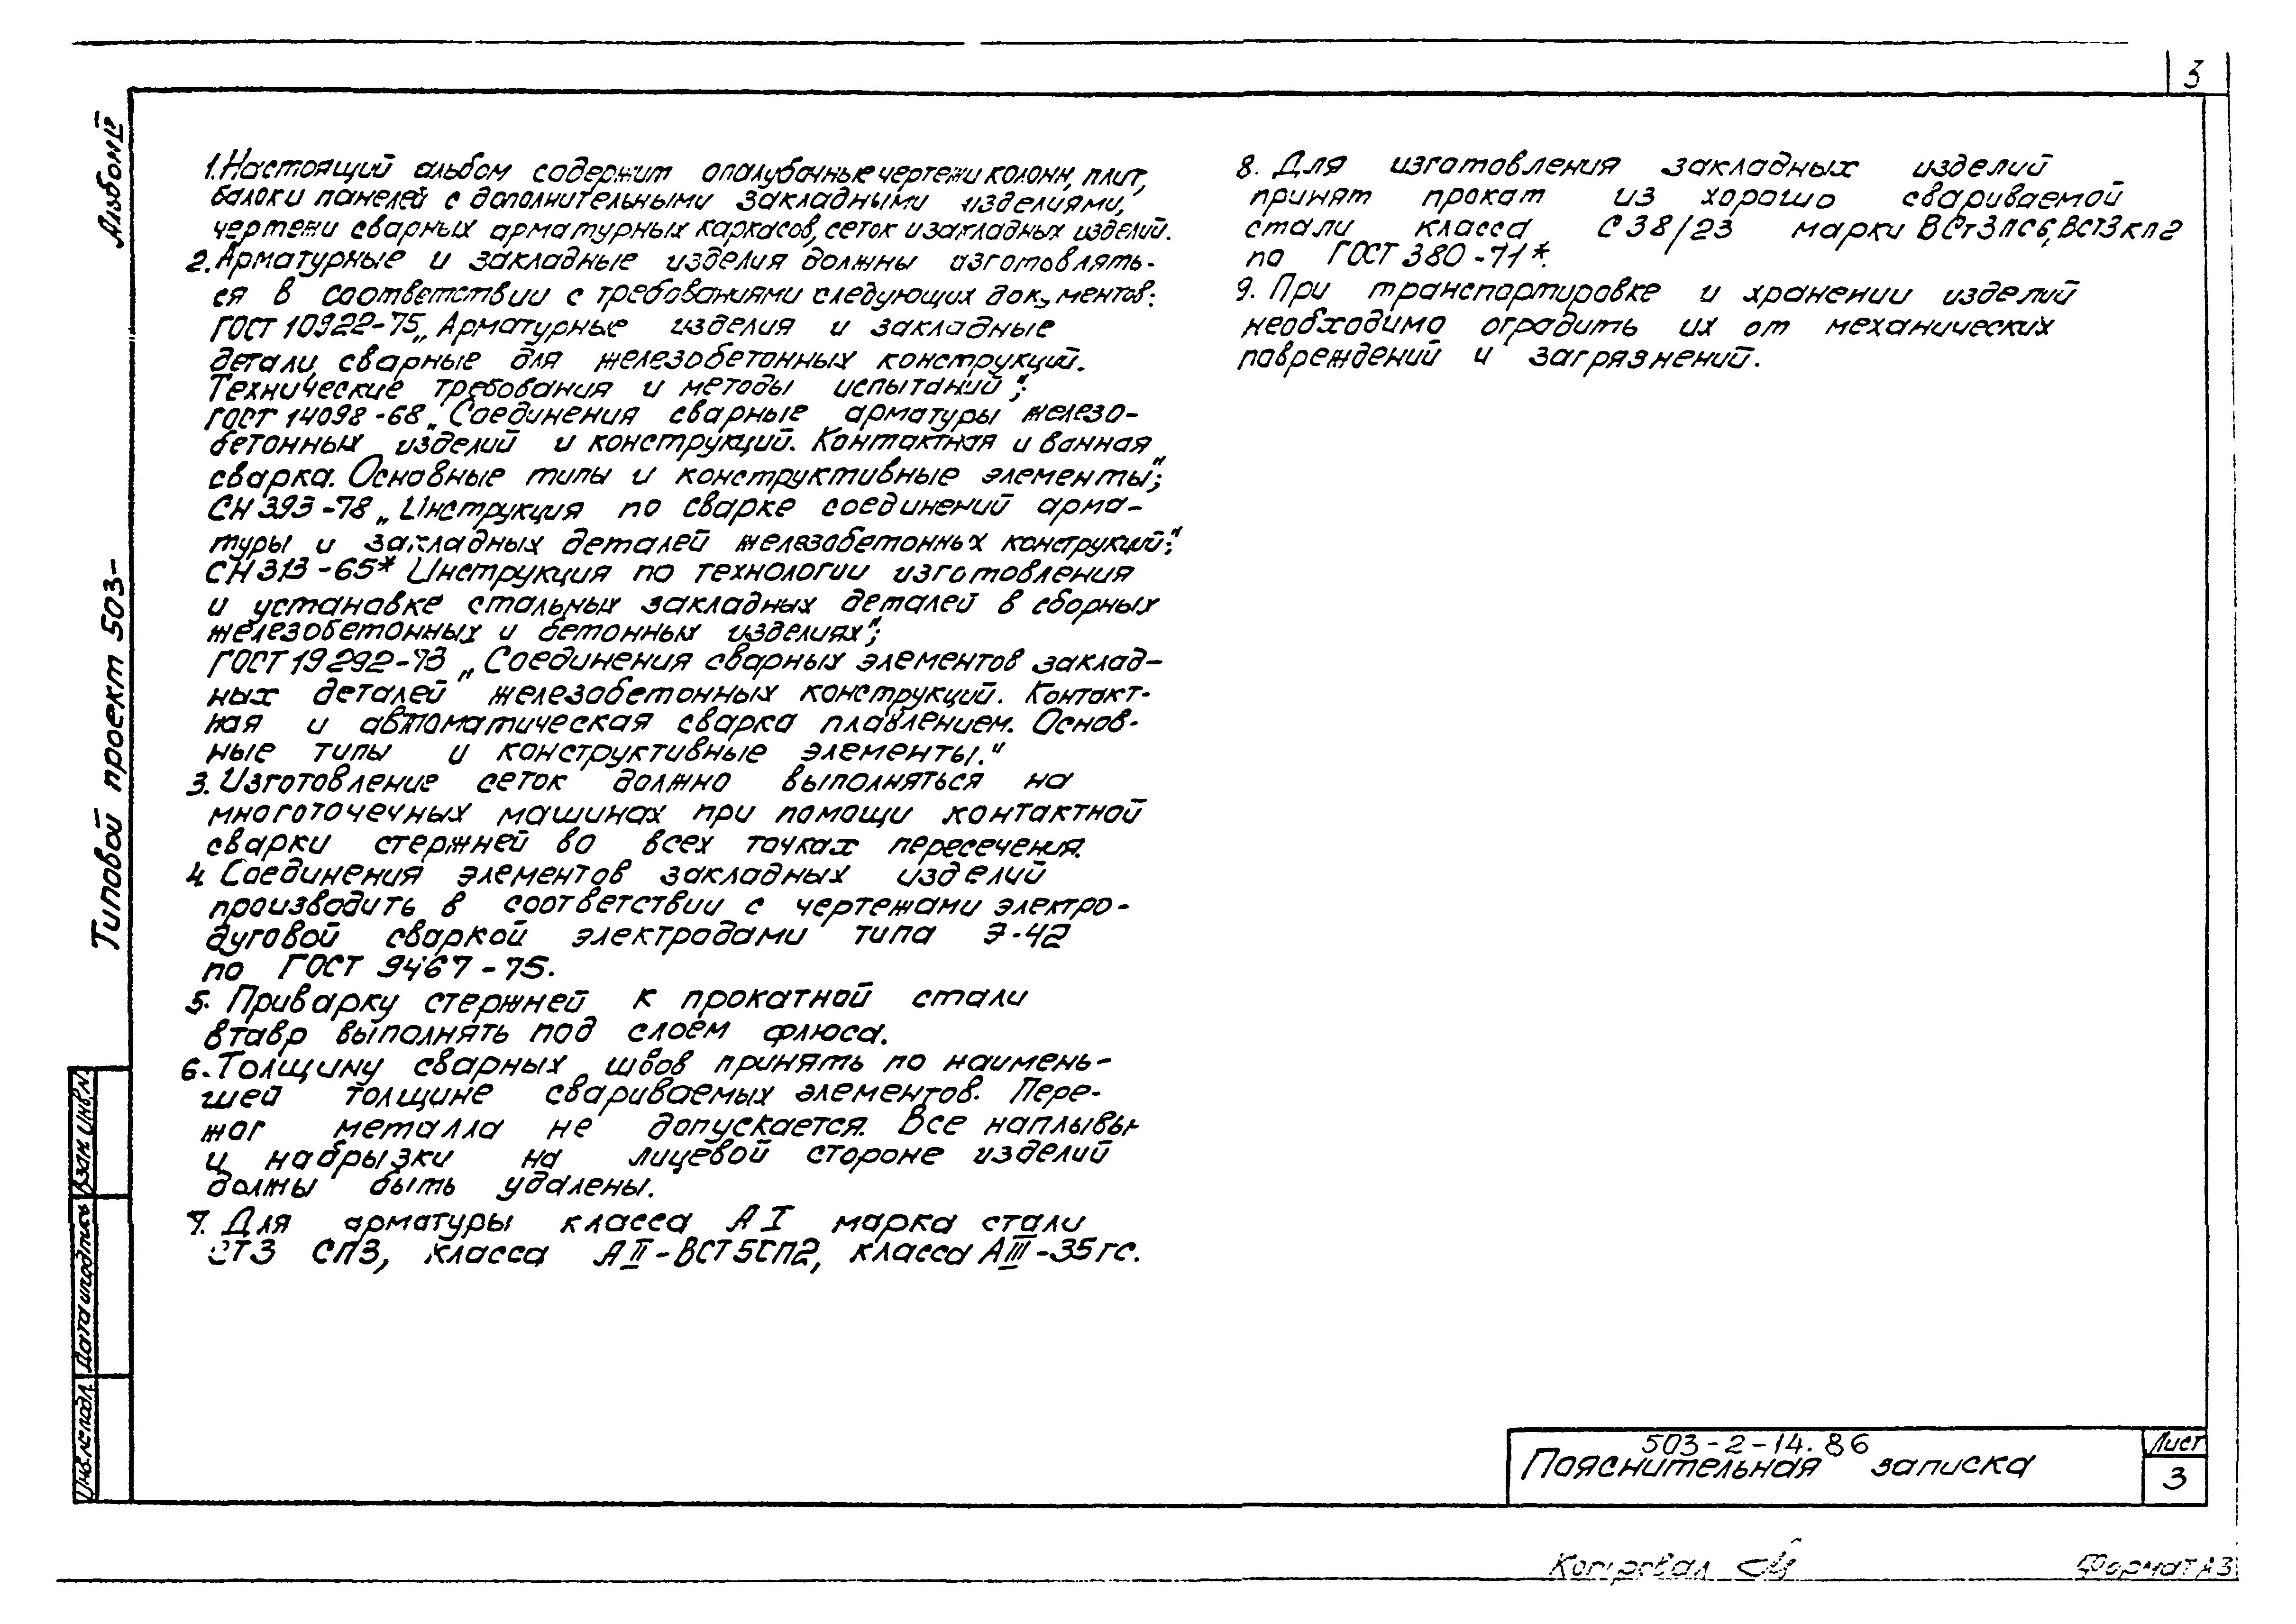 3
Альбом IV
1. Настоящий альбом содержит опалубочные чертежи колонн, плит,
балок и панелей с дополнительными закладными изделиями,
чертежи сварных арматурных каркасов, сеток и закладных изделий.
2. Арматурные и закладные изделия должны изготовлять-
ся в соответствии с требованиями следующих документов:
ГОСТ 10922-75 „Арматурные изделия и закладные
детали сварные для железобетонных конструкций.
Технические требования и методы испытаний";
ГОСТ 14098-68 „Соединения сварные арматуры железо-
бетонных изделий и конструкций. Контактная и ванная
сварка. Основные типы и конструктивные элементы";
СН 393-78 „Инструкция по сварке соединений арма-
туры и закладных деталей железобетонных конструкций";
СН 313-65* Инструкция по технологии изготовления
и установке стальных закладных деталей в сборных
железобетонных и бетонных изделиях";
ГОСТ 19292-73 „Соединения сварных элементов заклад-
ных деталей железобетонных конструкций. Контакт-
ная и автоматическая сварка плавлением. Основ-
ные типы и конструктивные элементы."
3. Изготовление сеток должно выполняться на
многоточечных машинах при помощи контактной
сварки стержней во всех точках пересечения.
4. Соединения элементов закладных изделий
производить в соответствии с чертежами электро-
дуговой сваркой электродами типа Э-42
по ГОСТ 9467-75.
5. Приварку стержней к прокатной стали
втавр выполнять под слоем флюса.
6. Толщину сварных швов принять по наимень-
шей толщине свариваемых элементов. Пере-
жог металла не допускается. Все наплывы
и набрызки на лицевой стороне изделий
должны быть удалены.
7. Для арматуры класса А I марка стали
СТ3 СП3, класса А II - ВСТ5СП2, класса А III - 35ГС.
8. Для изготовления закладных изделий
принят прокат из хорошо свариваемой
стали класса С 38/23 марки ВСт3пс6, ВСт3кп2
по ГОСТ 380-71*.
9. При транспортировке и хранении изделий
необходимо оградить их от механических
повреждений и загрязнений.
Типовой проект 503-
Взам. инв.N
Дата и подпись
Инв.№ подл.
503-2-14.86
Пояснительная записка
Лист
3
Копировал
Формат А3